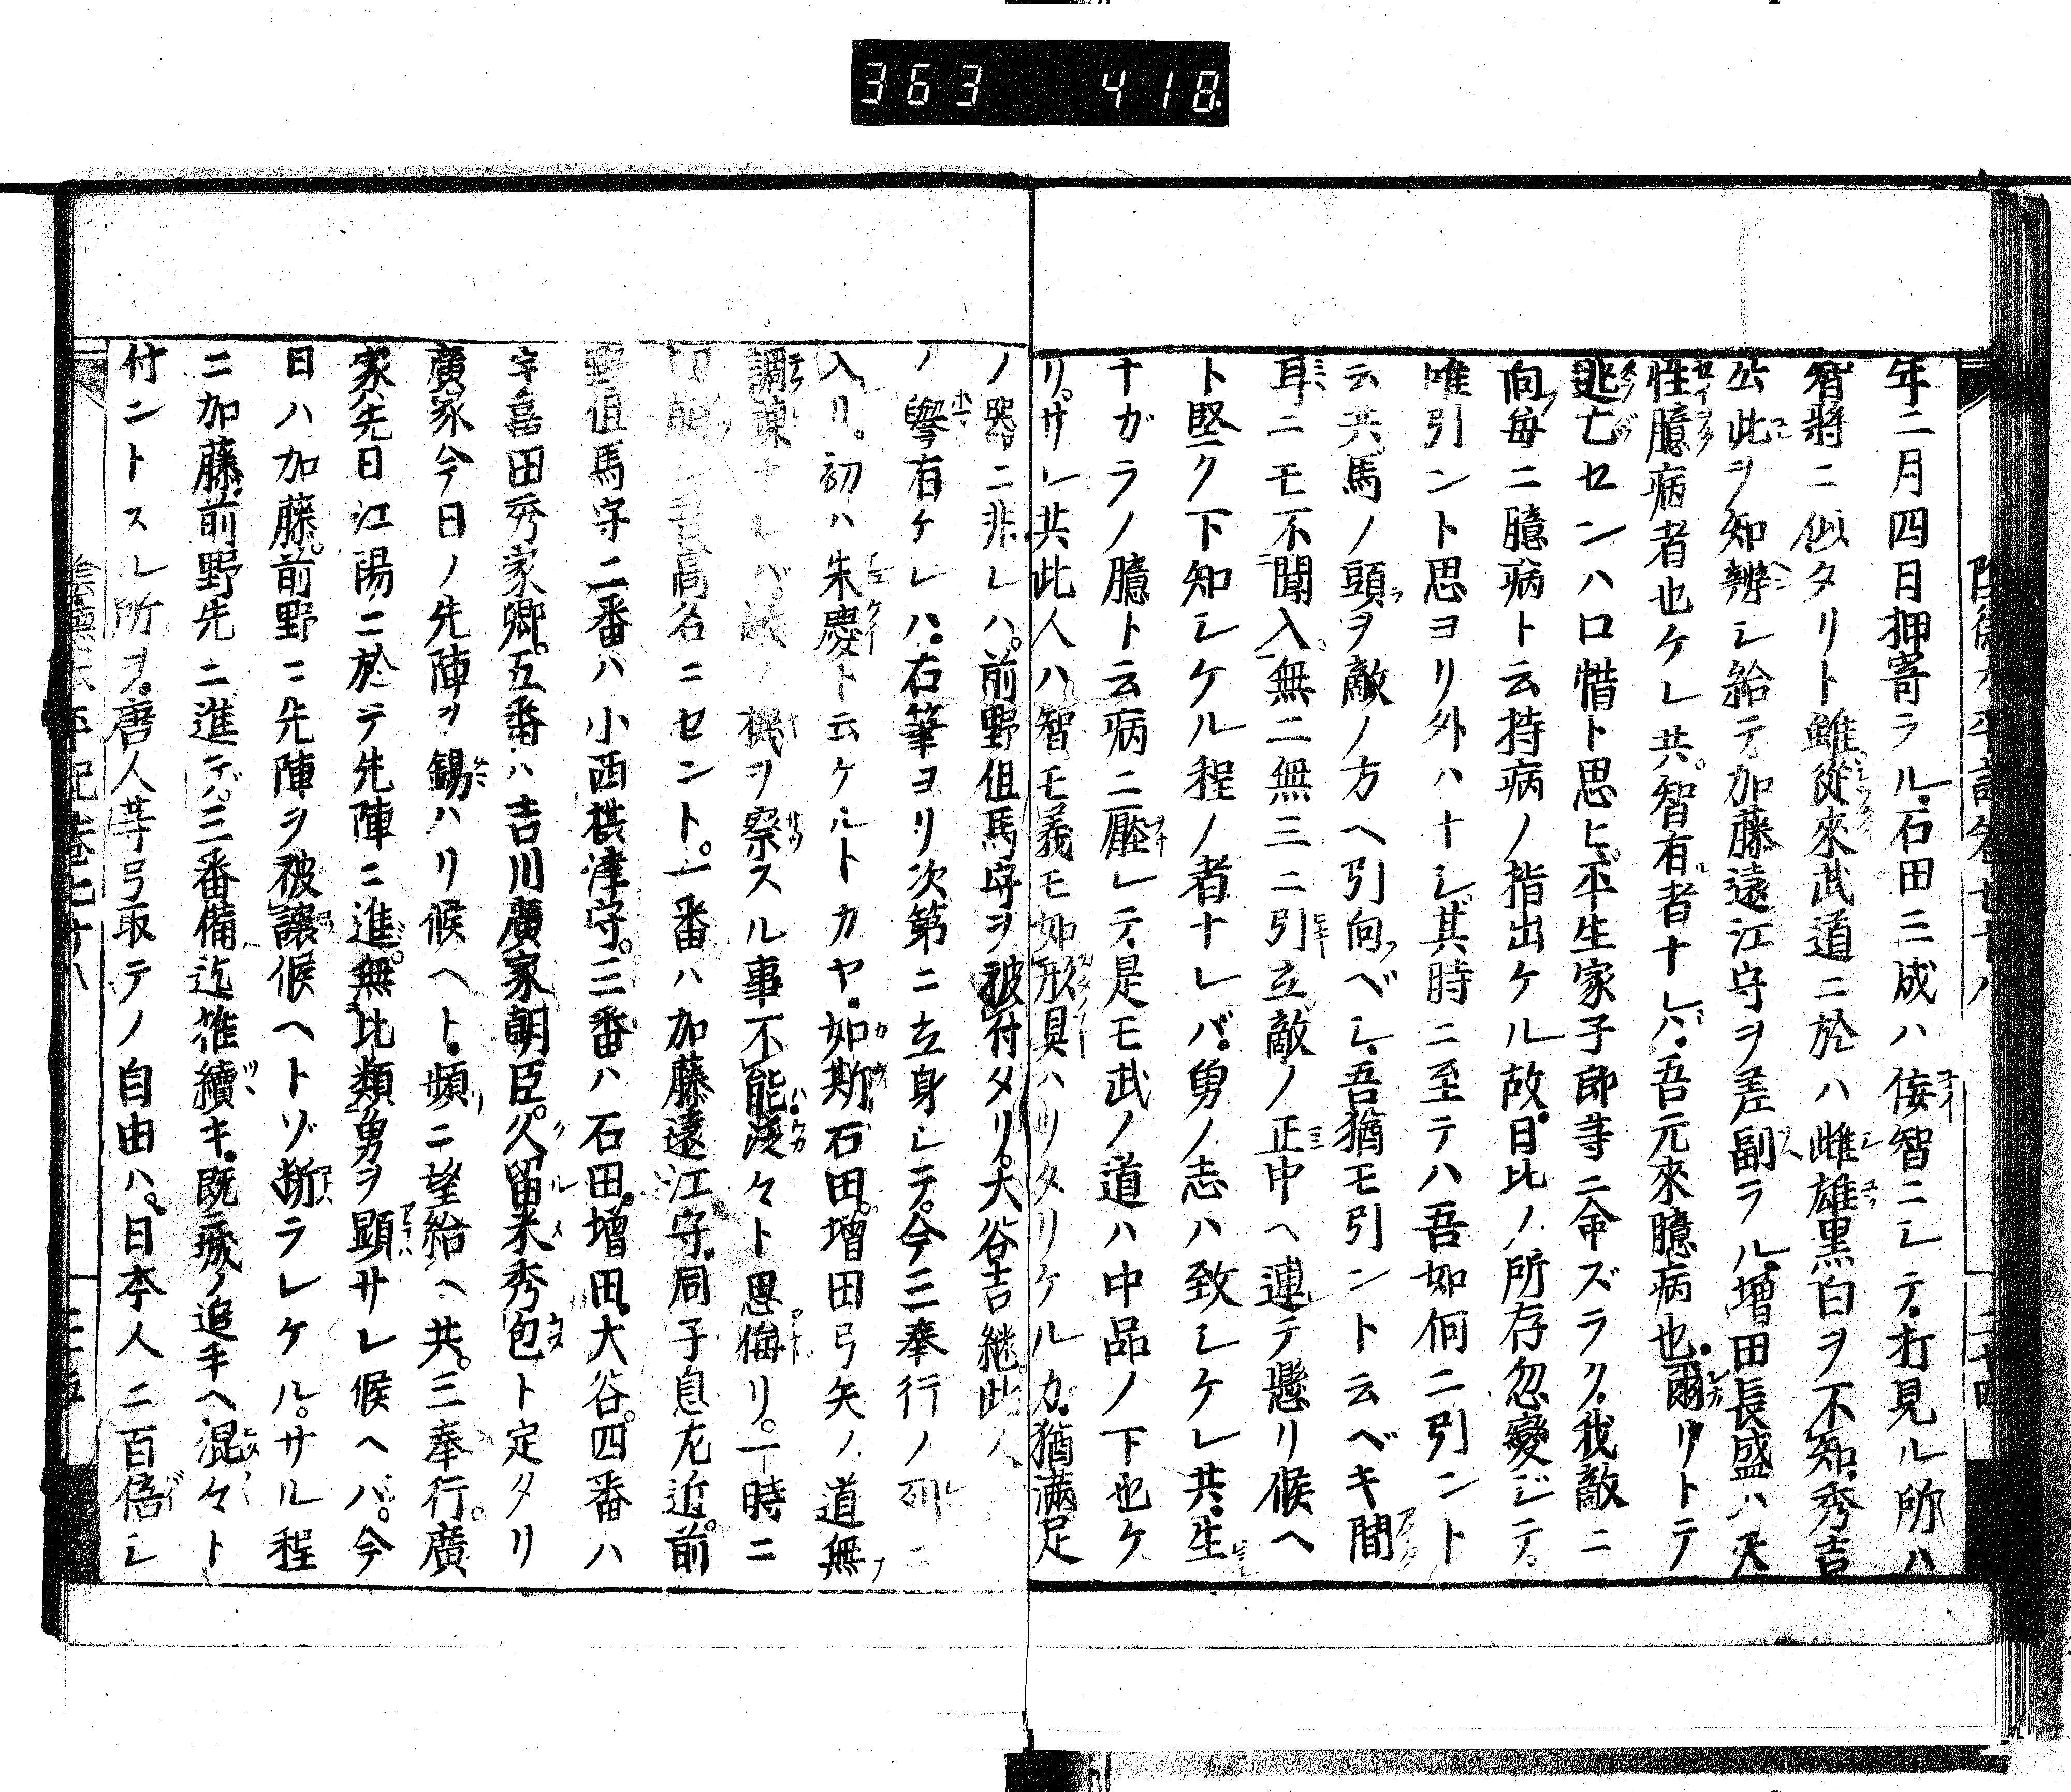 363 418
年二月四日押寄ラル。石田三成ハ侫智ニシテ。打見ル所ハ
智將ニ似タリト雖。從來武道ニ於ハ雌雄黒白ヲ不知。秀吉
公此ヲ知辨シ給テ。加藤遠江守ヲ差副ラル。増田長盛ハ天
性臆病者也ケレ共。智有者ナレバ。吾元來臆病也。爾リトテ
逃亡センハ口惜ト思ヒ。平生家子郎等ニ命ズラク。我敵ニ
向毎ニ臆病ト云持病ノ指出ケル故。日比ノ所存忽變ジテ。
唯引ント思ヨリ外ハナシ。其時ニ至テハ吾如何ニ引ント
云共。馬ノ頭ヲ敵ノ方ヘ引向ベシ。吾猶モ引ント云ベキ間
耳ニモ不聞入。無二無三ニ引立。敵ノ正中ヘ連テ懸リ候ヘ
ト堅ク下知シケル程ノ者ナレバ。勇ノ志ハ致シケレ共。生
ナガラノ臆ト云病ニ壓レテ。是モ武ノ道ハ中品ノ下也ケ
リ。サレ共此人ハ智モ義モ如形具ハリタリケルカ。猶滿足
ノ器ニ非レハ。前野但馬守ヲ被付タリ。大谷吉継。此人
ノ譽有ケレハ。右筆ヨリ次第ニ立身シテ。今三奉行ノ列ニ
入リ。初ハ朱慶ト云ケルトカヤ。如斯石田。増田弓矢ノ道無
調練ナレバ。機ヲ察スル事不能。淺々ト思侮リ。一時ニ
切崩シ高名ニセント。一番ハ加藤遠江守。同子息左近。前
野但馬守二番ハ小西攝津守。三番ハ石田。増田。大谷。四番ハ
宇喜田秀家卿。五番ハ吉川廣家朝臣。久留米秀包ト定タリ
廣家今日ノ先陣ヲ錫ハリ候ヘト。頻ニ望給ヘ共。三奉行。廣
家先日江陽ニ於テ先陣ニ進。無比類勇ヲ顯サレ候ヘバ。今
日ハ加藤。前野ニ先陣ヲ被讓候ヘトゾ斷ラレケル。サル程
ニ加藤。前野先ニ進テバ。三番備迄推續キ。既城ノ追手ヘ混々ト
付ントスル所ヲ。唐人等弓取テノ自由ハ。日本人ニ百倍シ